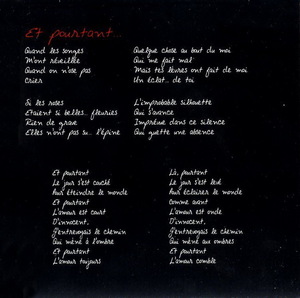 Et pourtant...
Quand les songes
M'ont réveillée
Quand on n'ose pas
Crier
Si les roses
Étaient si belles.. fleuries
Rien de grave
Elles n'ont pas su.. l'épine
Quelque chose au bout du moi
Qui me fait mal
Mais tes lèvres ont fait de moi
Un éclat.. de toi
L'improbable silhouette
Qui s'avance
Imprévue dans ce silence
Qui guette une absence
Et pourtant
Le jour s'est couché
Aux éteindre le monde
Et pourtant
L'amour est court
D'innocent,
J'entrevoyais le chemin
Qui mène à l'ombre
Et pourtant
L'amour toujours
Là, pourtant
Le jour s'est levé
Aux éclairer le monde
Comme avant
L'amour est onde
D'innocent,
J'entrevoyais le chemin
Qui mène aux ombres
Et pourtant
L'amour comble